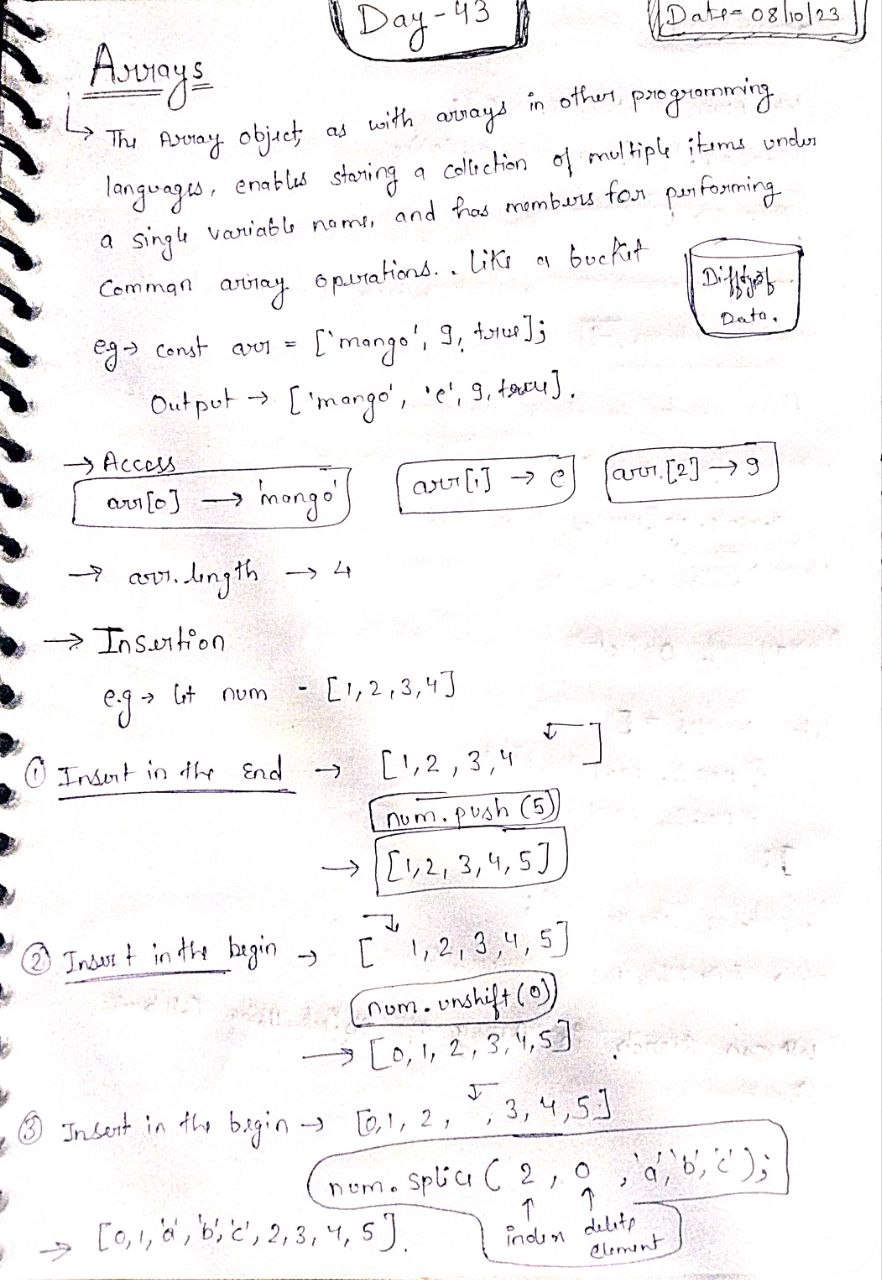 Day-43
Date= 08/10/23
Arrays
↳ The Array object, as with arrays in other programming
languages, enables staring a collection of multiple items under
a single variable name, and has members for performing
Comman array operations.. Like a bucket
Data.
eg→ const arr = ['mango', 9, true];
Output → ['mango', 'e', 9, true].
→ Access
arr[0] → 'mango'
arr[1] → e
arr.[2] → 9
→ arr.length → 4
→ Insertion
e.g → let num - [1,2,3,4]
① Insert in the End → [1,2,3,4 ]
num.push (5)
→ [1,2,3,4,5]
② Insert in the begin → [ 1,2,3,4,5]
num.unshift(0)
→ [0,1,2,3,4,5]
③ Insert in the begin → [0,1,2, ,3,4,5]
num.splice ( 2 , 0 , 'a','b','c');
↑ ↑
index delete
element
→ [0,1,'a','b','c',2,3,4,5].